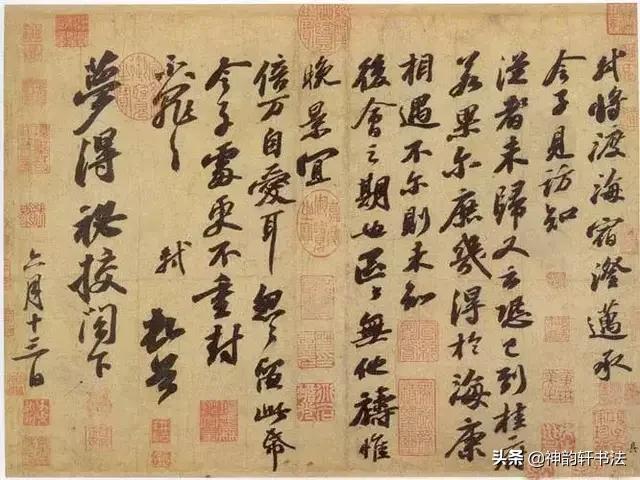 軾將渡海宿澄邁承
令子見訪知
從者未歸又云恐已到桂府
若果尔庶幾得於海康
相遇不尔則未知
後會之期也區々無他禱惟
晚景宜
倍万自愛耳忽々留此帋
令子處更不重封
不罪々
軾 頓首
夢得祕校閤下
六月十三日
头条 @神韵轩书法